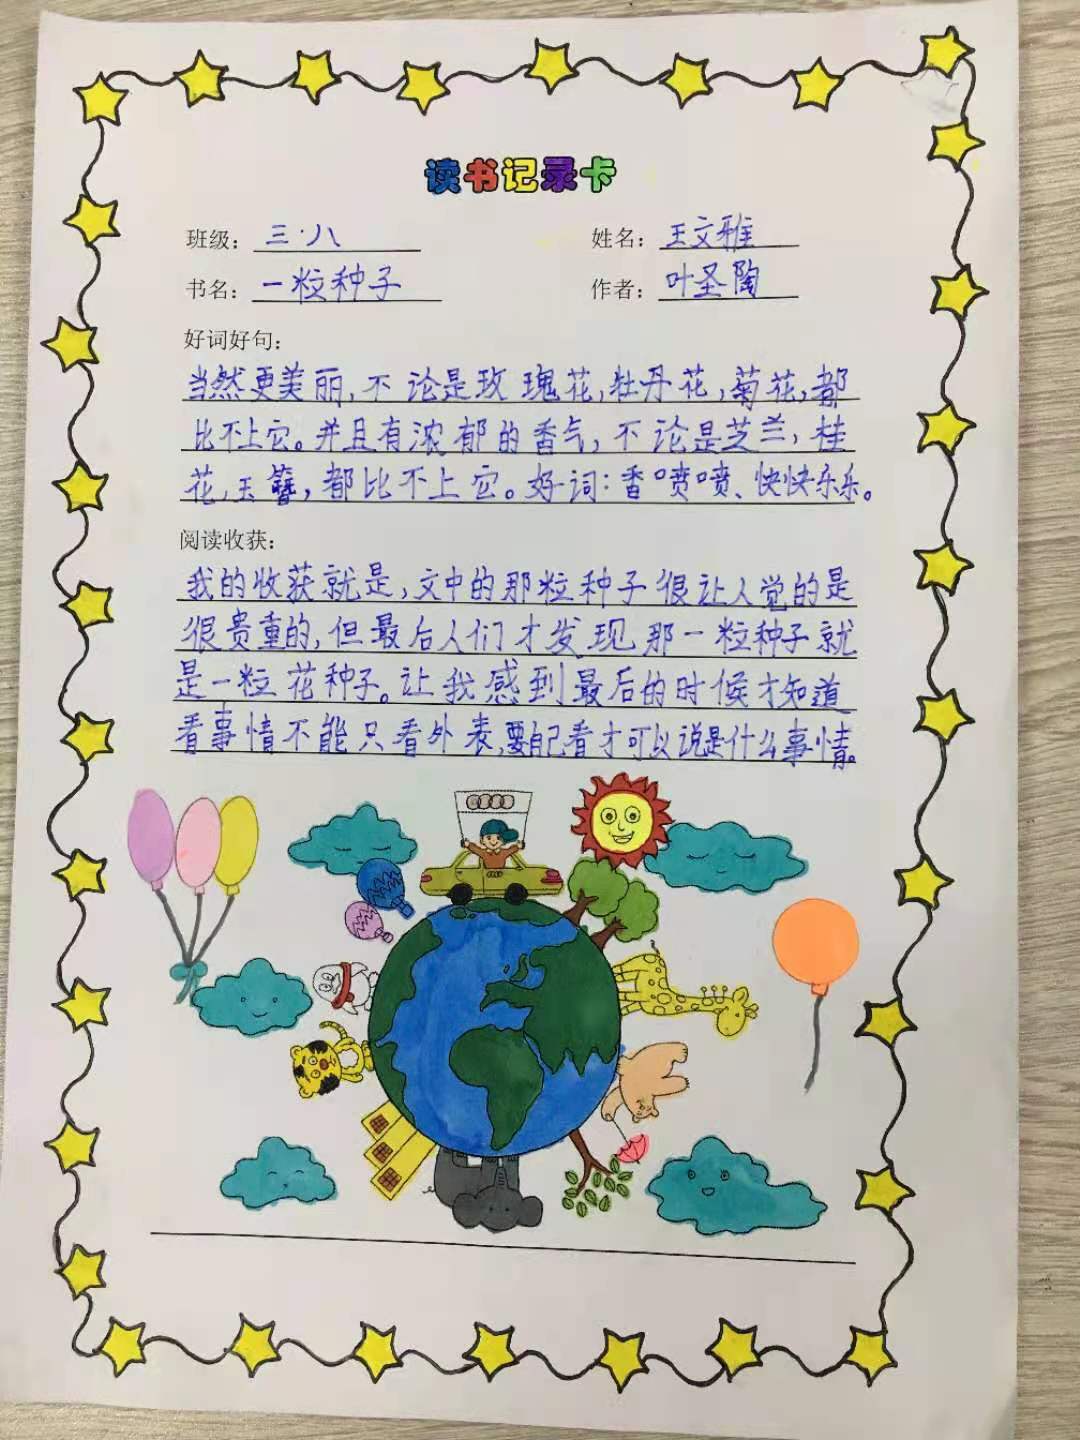 读书记录卡
班级：三·八 姓名：王文雅
书名：一粒种子 作者：叶圣陶
好词好句：
当然更美丽，不论是玫瑰花，牡丹花，菊花，都
比不上它。并且有浓郁的香气，不论是芝兰，桂
花，玉簪，都比不上它。好词：香喷喷、快快乐乐。
阅读收获：
我的收获就是，文中的那粒种子很让人觉的是
很贵重的，但最后人们才发现那一粒种子就
是一粒花种子。让我感到最后的时候才知道
看事情不能只看外表，要自己看才可以说是什么事情。